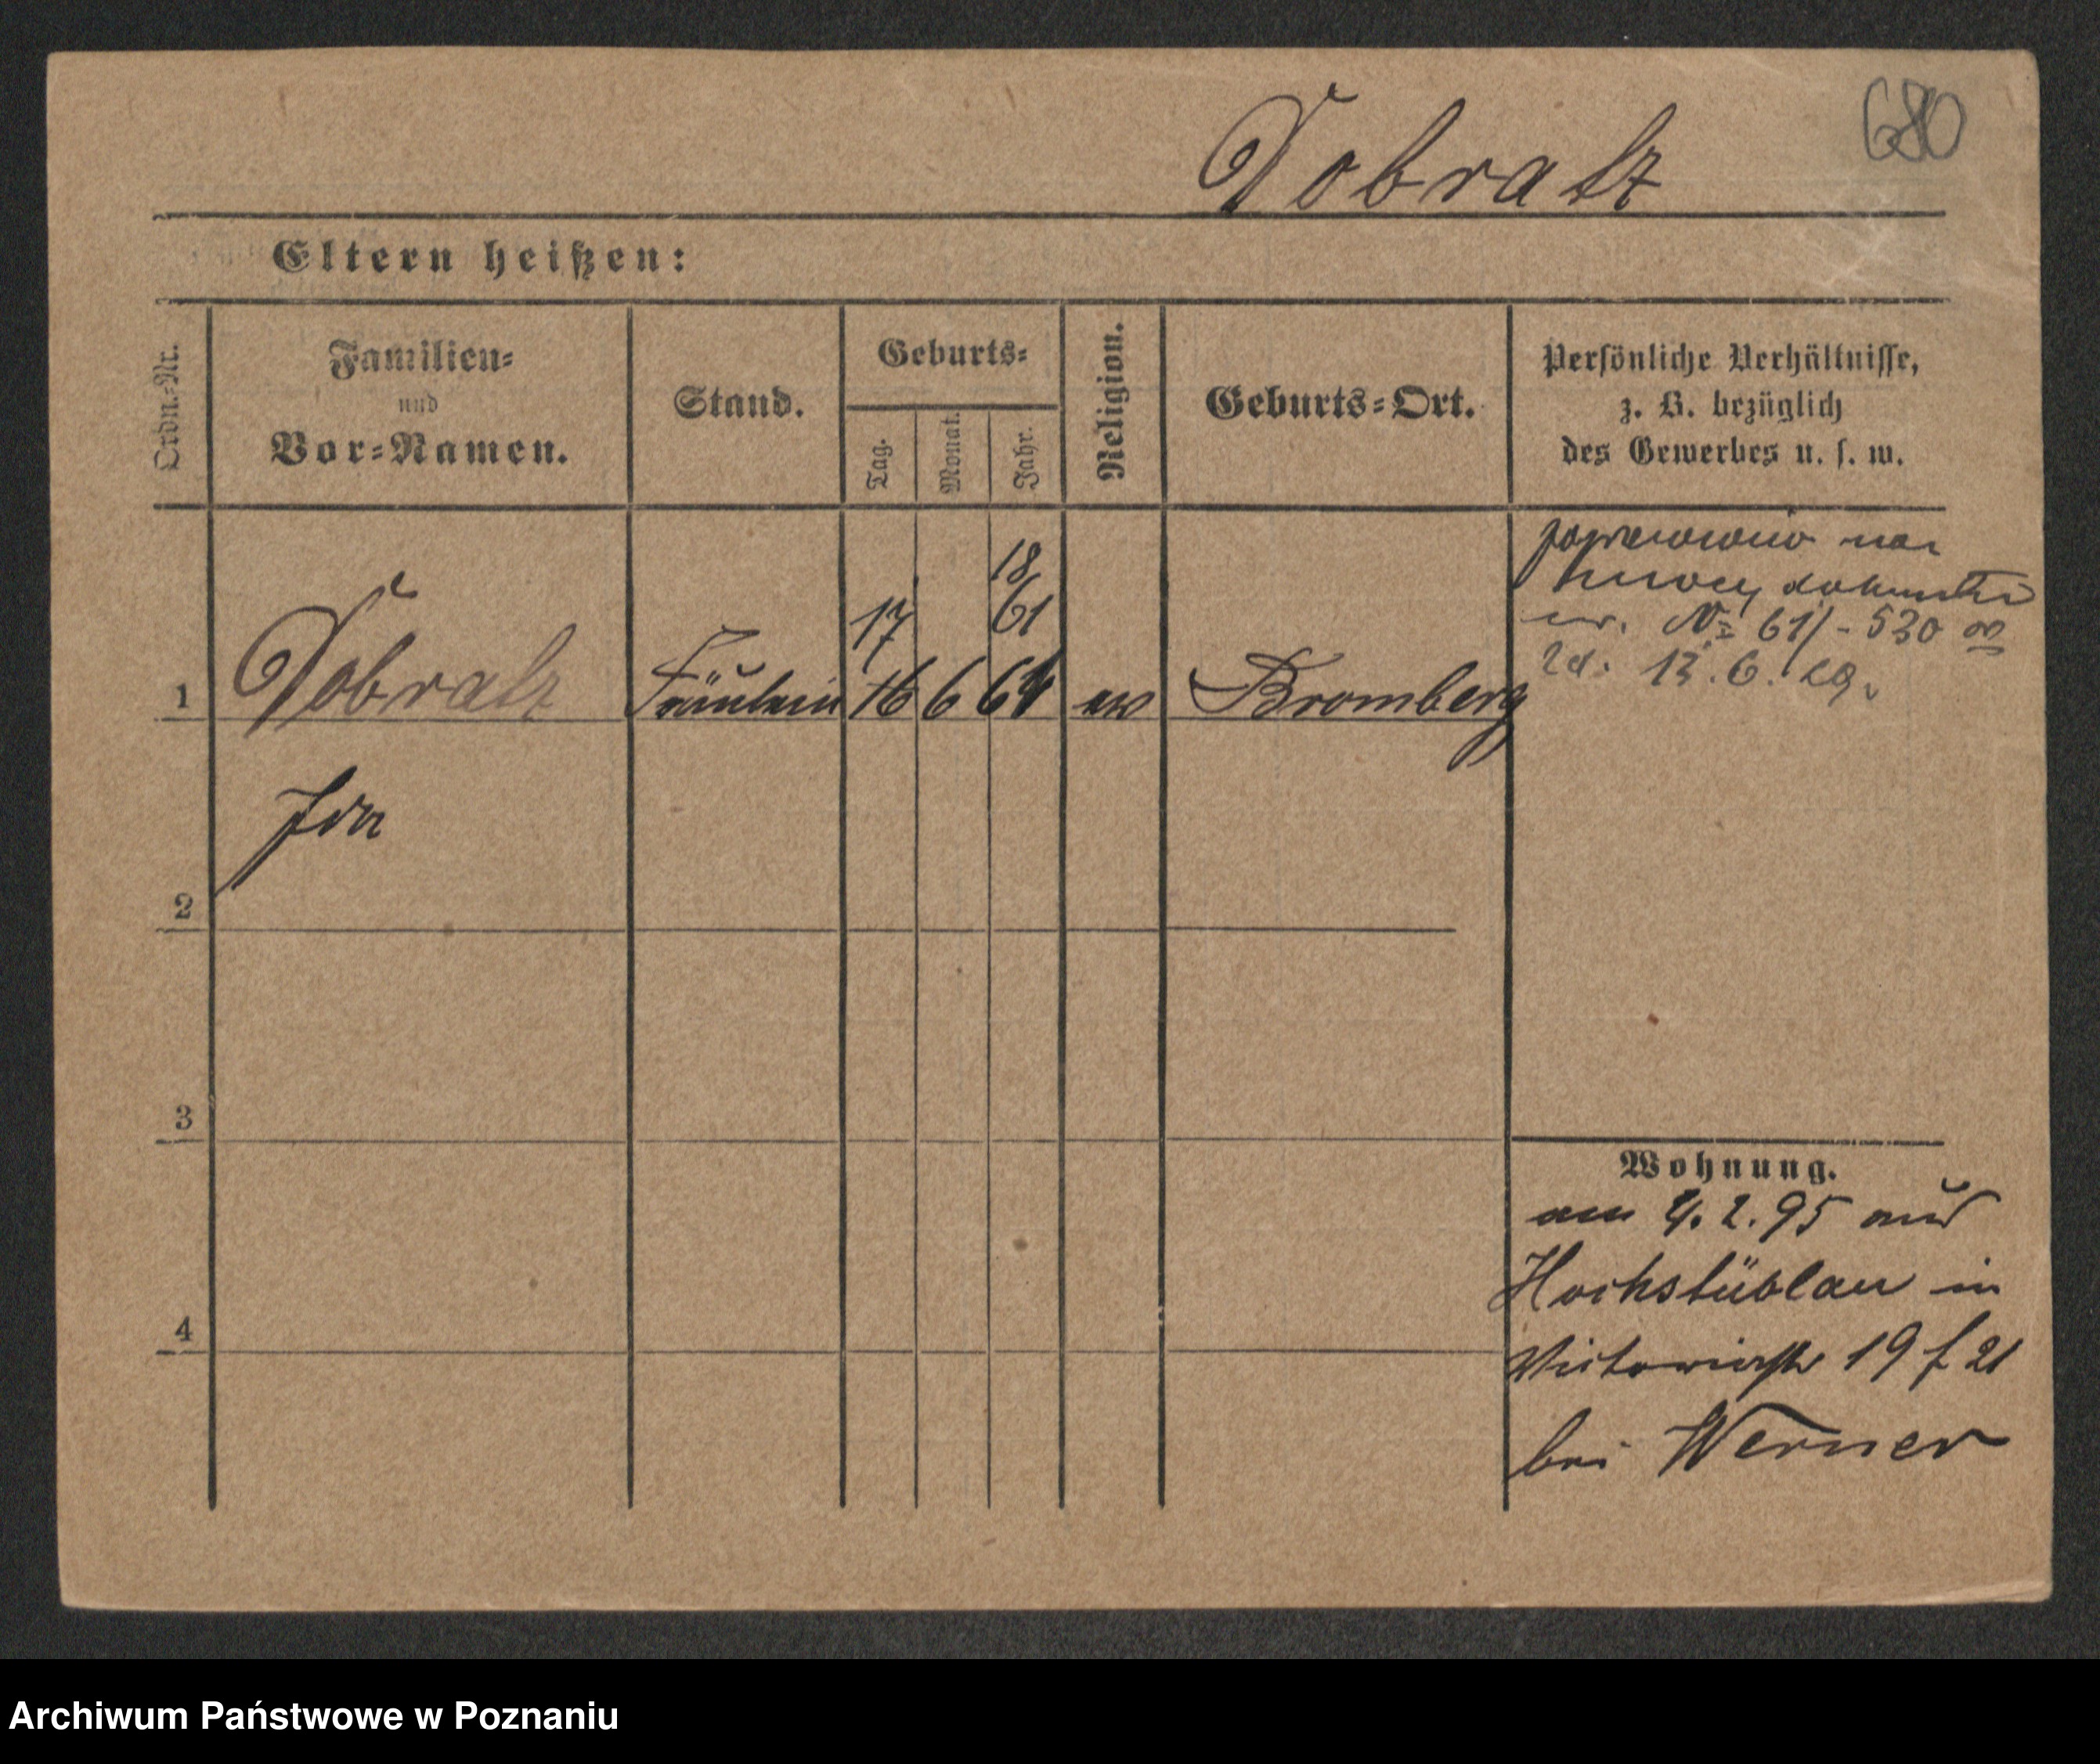 680
Dobratz
Eltern heißen:
Ordn.-Nr.
Familien-
und
Vor-Namen.
Stand.
Geburts-
Tag.
Monat.
Jahr.
Religion.
Geburts-Ort.
Persönliche Verhältnisse,
z. B. bezüglich
des Gewerbes u. s. w.
18
17 61
1 Dobratz Fräulein 16 6 64 ev Bromberg
poprawiono na
mocy
nr. № 61/-530
zd. 13.6.29.
Ida
2
3
4
Wohnung.
am 4.2.95 aus
Hochstüblau in
Victoriastr 19 f 21
bei Werner
Archiwum Państwowe w Poznaniu